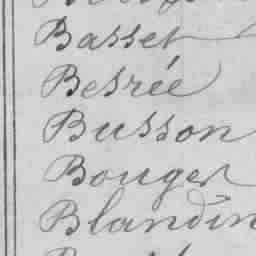 Basset
Besrée
Busson
Bouger
Blandin